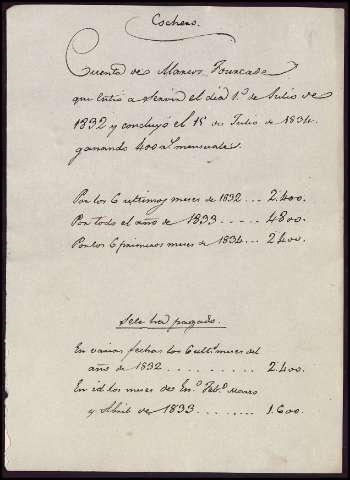 Cochero.
Cuenta de Marcos Fourcade
que entró a servir el día 1.º de Julio de
1832 y concluyó el 15 de Julio de 1834.
ganando 400 r.s mensuales.
Por los 6 ultimos meses de 1832 ... 2.400.
Por todo el año de 1833 ..... 4800.
Por los 6 primeros meses de 1834 ... 2400.
Se le ha pagado.
En varias fechas los 6 ult.s meses del
año de 1832 .......... 2.400.
En id. los meses de En.º Feb.º Marzo
y Abril de 1833 ........ 1.600.